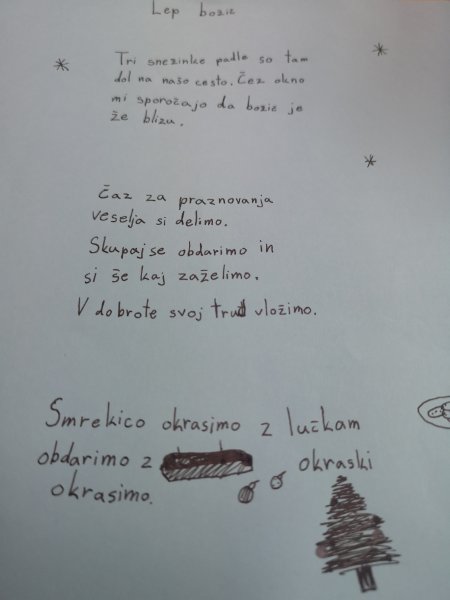 Lep bozic
Tri snezinke padle so tam
dol na našo cesto. Čez okno
mi sporočajo da bozic je
že blizu.
Čaz za praznovanja
veselja si delimo.
Skupaj se obdarimo in
si še kaj zaželimo.
V dobrote svoj trud vložimo.
Smrekico okrasimo z lučkam
obdarimo z okraski
okrasimo.